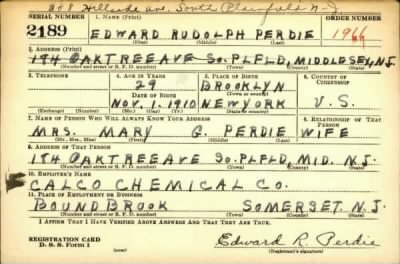 208 Hillside ave, South Plainfield N.J.
SERIAL NUMBER 1. NAME (Print) ORDER NUMBER
2189 EDWARD RUDOLPH PERDIE 1966
(First) (Middle) (Last)
2. ADDRESS (Print)
OAKTREE AVE SO. PLFLD, MIDDLESEX, N.J.
(Number and street or R. F. D. number) (Town) (County) (State)
3. TELEPHONE 4. AGE IN YEARS 5. PLACE OF BIRTH 6. COUNTRY OF CITIZENSHIP
29 BROOKLYN
DATE OF BIRTH (Town or county)
NOV. 1. 1910 NEW YORK U.S.
(Exchange) (Number) (Mo.) (Day) (Yr.) (State or country)
7. NAME OF PERSON WHO WILL ALWAYS KNOW YOUR ADDRESS 8. RELATIONSHIP OF THAT PERSON
MRS. MARY G. PERDIE WIFE
(Mr., Mrs., Miss) (First) (Middle) (Last)
9. ADDRESS OF THAT PERSON
OAKTREE AVE SO. PLFLD, MID. N.J.
(Number and street or R. F. D. number) (Town) (County) (State)
10. EMPLOYER'S NAME
CALCO CHEMICAL CO.
11. PLACE OF EMPLOYMENT OR BUSINESS
BOUND BROOK SOMERSET. N.J.
(Number and street or R. F. D. number) (Town) (County) (State)
I AFFIRM THAT I HAVE VERIFIED ABOVE ANSWERS AND THAT THEY ARE TRUE.
REGISTRATION CARD
D. S. S. Form 1 (over) Edward R. Perdie
(Registrant's signature)